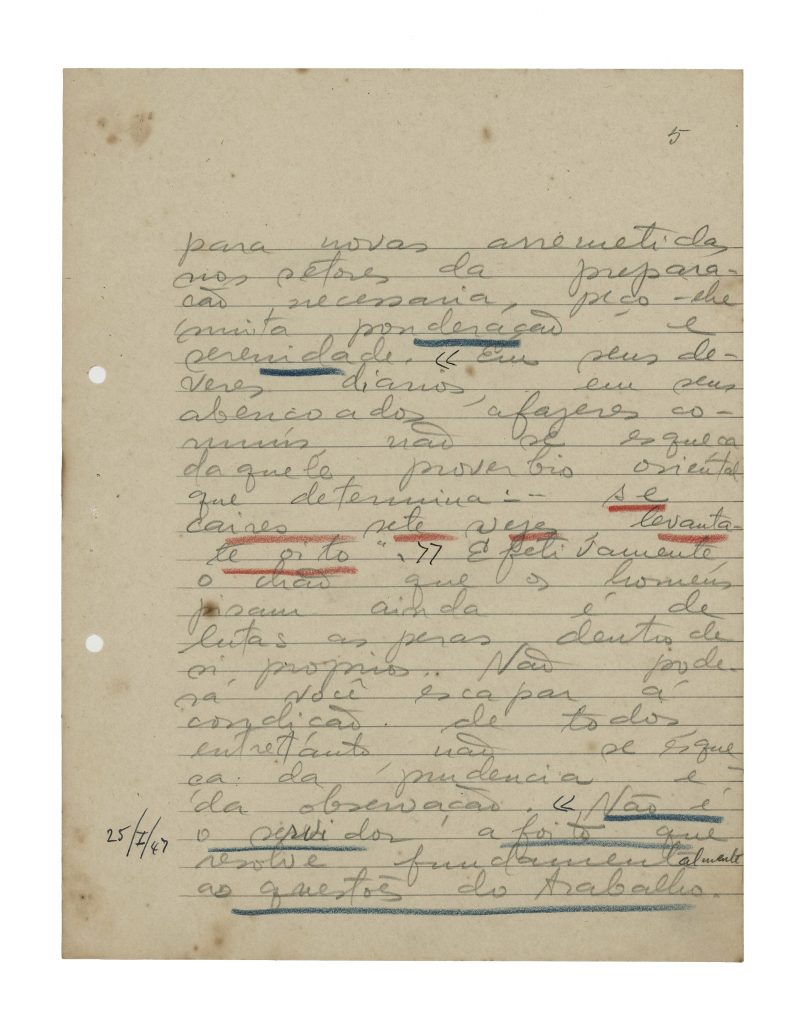 5
para novas arremetidas
nos setores da prepara-
cão necessaria, peço-lhe
muita ponderação e
serenidade. << Em seus de-
veres diarios, em seus
abencoados afazeres co-
muns, não se esqueca
daquele proverbio oriental
que determina: - se
caires sete vezes, levanta-
te oito". >> Efetivamente
o chão que os homens
pisam ainda é de
lutas asperas dentro de
si proprios. Não pode-
rá você escapar á
condicão de todos
entretanto não se esque
ca da prudencia e
da observação. << Não é
o servidor afoito que
resolve fundamentalmente
as questões do trabalho.
25/I/47